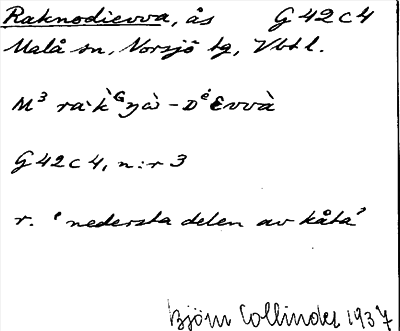 Raknodievva, ås G42C4
Malå sn, Norsjö tg, Vbtl.
G42C4, n:r 3
r. 'nedersta delen av kåta'
Björn Collinder 1937